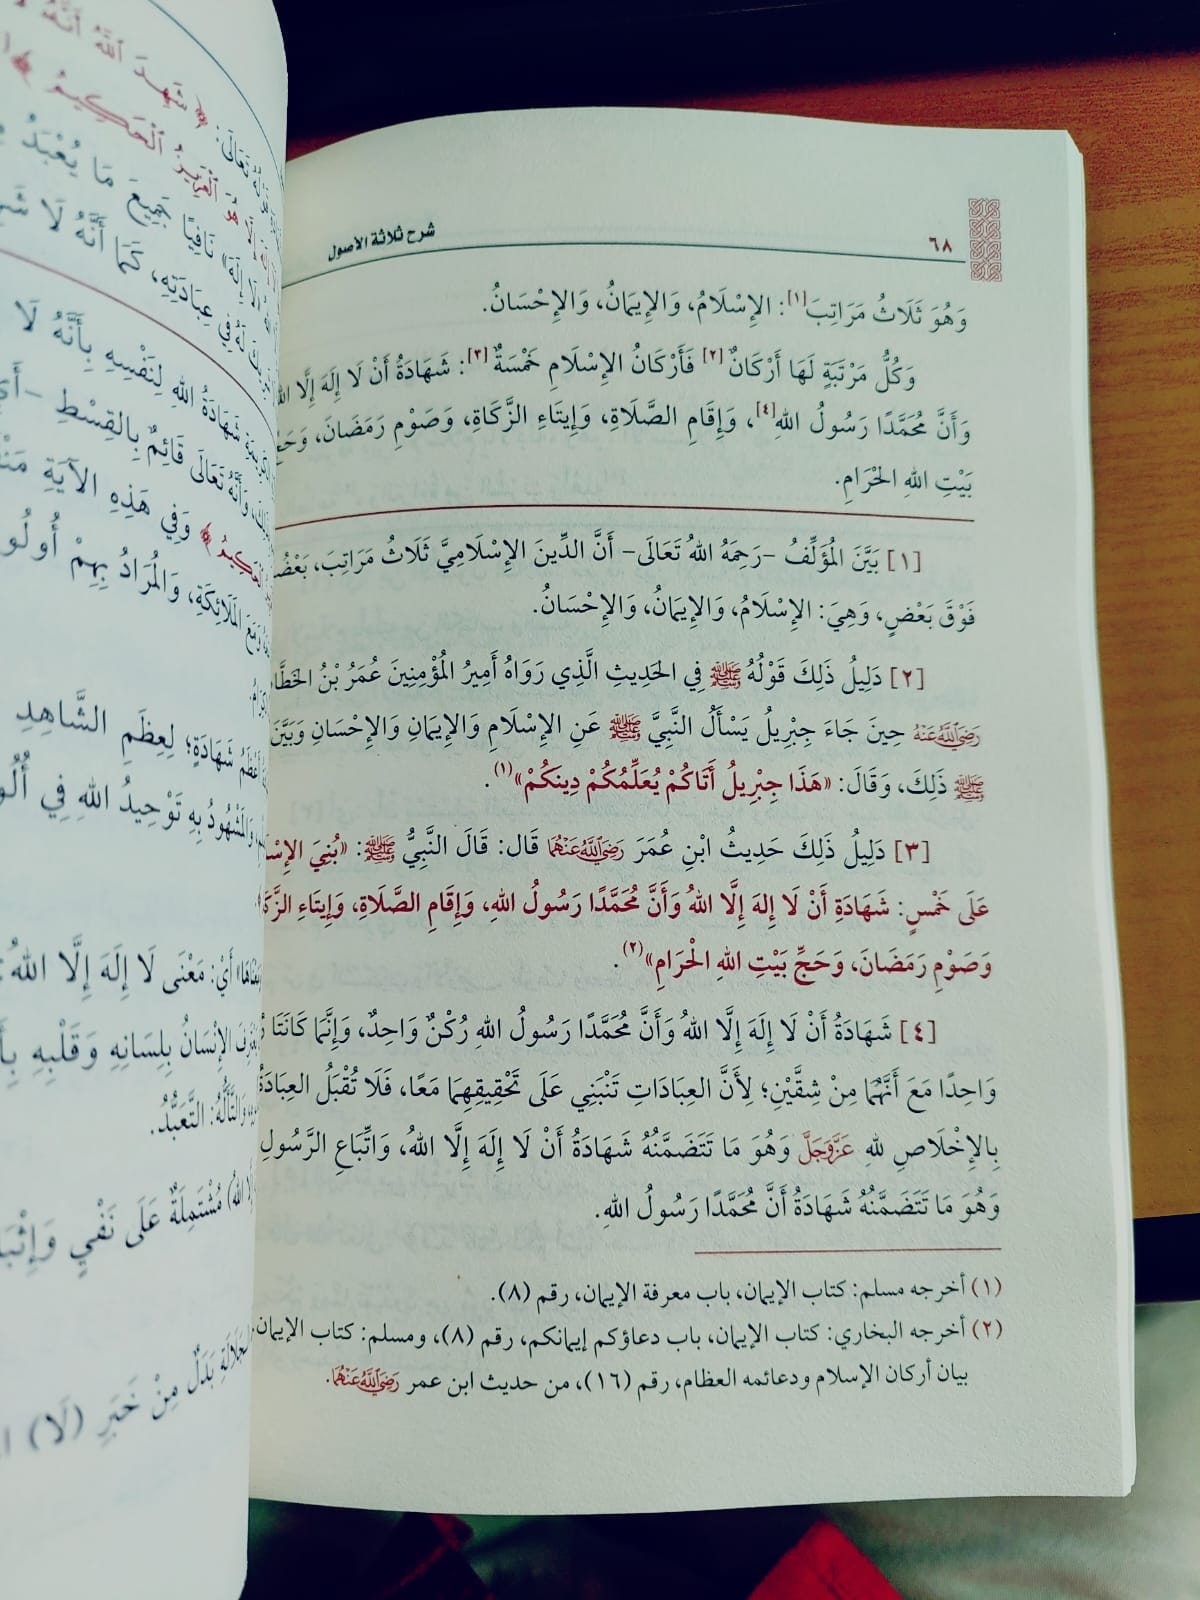 ٦٨
شرح ثلاثة الأصول
وَهُوَ ثَلَاثُ مَرَاتِبَ[١]: الإِسْلَامُ، وَالإِيمَانُ، وَالإِحْسَانُ.
وَكُلُّ مَرْتَبَةٍ لَهَا أَرْكَانٌ[٢] فَأَرْكَانُ الإِسْلَامِ خَمْسَةٌ[٣]: شَهَادَةُ أَنْ لَا إِلَهَ إِلَّا اللهُ
وَأَنَّ مُحَمَّدًا رَسُولُ اللهِ[٤]، وَإِقَامِ الصَّلَاةِ، وَإِيتَاءِ الزَّكَاةِ، وَصَوْمِ رَمَضَانَ، وَحَجِّ
بَيْتِ اللهِ الحَرَامِ.
[١] بَيَّنَ المُؤَلِّفُ -رَحِمَهُ اللهُ تَعَالَى- أَنَّ الدِّينَ الإِسْلَامِيَّ ثَلَاثُ مَرَاتِبَ، بَعْضُ
فَوْقَ بَعْضٍ، وَهِيَ: الإِسْلَامُ، وَالإِيمَانُ، وَالإِحْسَانُ.
[٢] دَلِيلُ ذَلِكَ قَوْلُهُ ﷺ فِي الحَدِيثِ الَّذِي رَوَاهُ أَمِيرُ المُؤْمِنِينَ عُمَرُ بْنُ الخَطَّابِ
رَضِيَ اللَّهُ عَنْهُ حِينَ جَاءَ جِبْرِيلُ يَسْأَلُ النَّبِيَّ ﷺ عَنِ الإِسْلَامِ وَالإِيمَانِ وَالإِحْسَانِ وَبَيَّنَ
ﷺ ذَلِكَ، وَقَالَ: «هَذَا جِبْرِيلُ أَتَاكُمْ يُعَلِّمُكُمْ دِينَكُمْ»(١).
[٣] دَلِيلُ ذَلِكَ حَدِيثُ ابْنِ عُمَرَ رَضِيَ اللَّهُ عَنْهُمَا قَالَ: قَالَ النَّبِيُّ ﷺ: «بُنِيَ الإِسْلَامُ
عَلَى خَمْسٍ: شَهَادَةِ أَنْ لَا إِلهَ إِلَّا اللهُ وَأَنَّ مُحَمَّدًا رَسُولُ اللهِ، وَإِقَامِ الصَّلَاةِ، وَإِيتَاءِ الزَّكَاةِ،
وَصَوْمِ رَمَضَانَ، وَحَجِّ بَيْتِ اللهِ الْحَرَامِ»(٢).
[٤] شَهَادَةُ أَنْ لَا إِلَهَ إِلَّا اللهُ وَأَنَّ مُحَمَّدًا رَسُولُ اللهِ رُكْنٌ وَاحِدٌ، وَإِنَّمَا كَانَتَا
وَاحِدًا مَعَ أَنَّهُمَا مِنْ شِقَّيْنِ؛ لِأَنَّ العِبَادَاتِ تَنْبَنِي عَلَى تَحْقِيقِهِمَا مَعًا، فَلَا تُقْبَلُ العِبَادَةُ
بِالإِخْلَاصِ للهِ عَزَّوَجَلَّ وَهُوَ مَا تَتَضَمَّنُهُ شَهَادَةُ أَنْ لَا إِلَهَ إِلَّا اللهُ، وَاتِّبَاعِ الرَّسُولِ
وَهُوَ مَا تَتَضَمَّنُهُ شَهَادَةُ أَنَّ مُحَمَّدًا رَسُولُ اللهِ.
(١) أخرجه مسلم: كتاب الإيمان، باب معرفة الإيمان، رقم (٨).
(٢) أخرجه البخاري: كتاب الإيمان، باب دعاؤكم إيمانكم، رقم (٨)، ومسلم: كتاب الإيمان،
بيان أركان الإسلام ودعائمه العظام، رقم (١٦)، من حديث ابن عمر رَضِيَ اللَّهُ عَنْهُمَا.
شَهِدَ ٱللَّهُ أَنَّهُ
هُوَ ٱلْعَزِيزُ ٱلْحَكِيمُ
نَافِيًا جَمِيعَ مَا يُعْبَدُ
فِي عِبَادَتِهِ، كَمَا أَنَّهُ لَا
شَهَادَةُ اللهِ لِنَفْسِهِ بِأَنَّهُ لَا
وَأَنَّهُ تَعَالَى قَائِمٌ بِالقِسْطِ
وَفِي هَذِهِ الآيَةِ
المَلَائِكَةِ، وَالمُرَادُ بِهِمْ أُولُو
شَهَادَةٍ؛ لِعِظَمِ الشَّاهِدِ
وَالمَشْهُودُ بِهِ تَوْحِيدُ اللهِ فِي
أَيْ: مَعْنَى لَا إِلَهَ إِلَّا اللهُ
الإِنْسَانُ بِلِسَانِهِ وَقَلْبِهِ
وَالتَّأَلُّهُ: التَّعَبُّدُ.
مُشْتَمِلَةٌ عَلَى نَفْيٍ وَإِثْبَاتٍ
بَدَلٌ مِنْ خَبَرِ (لَا)